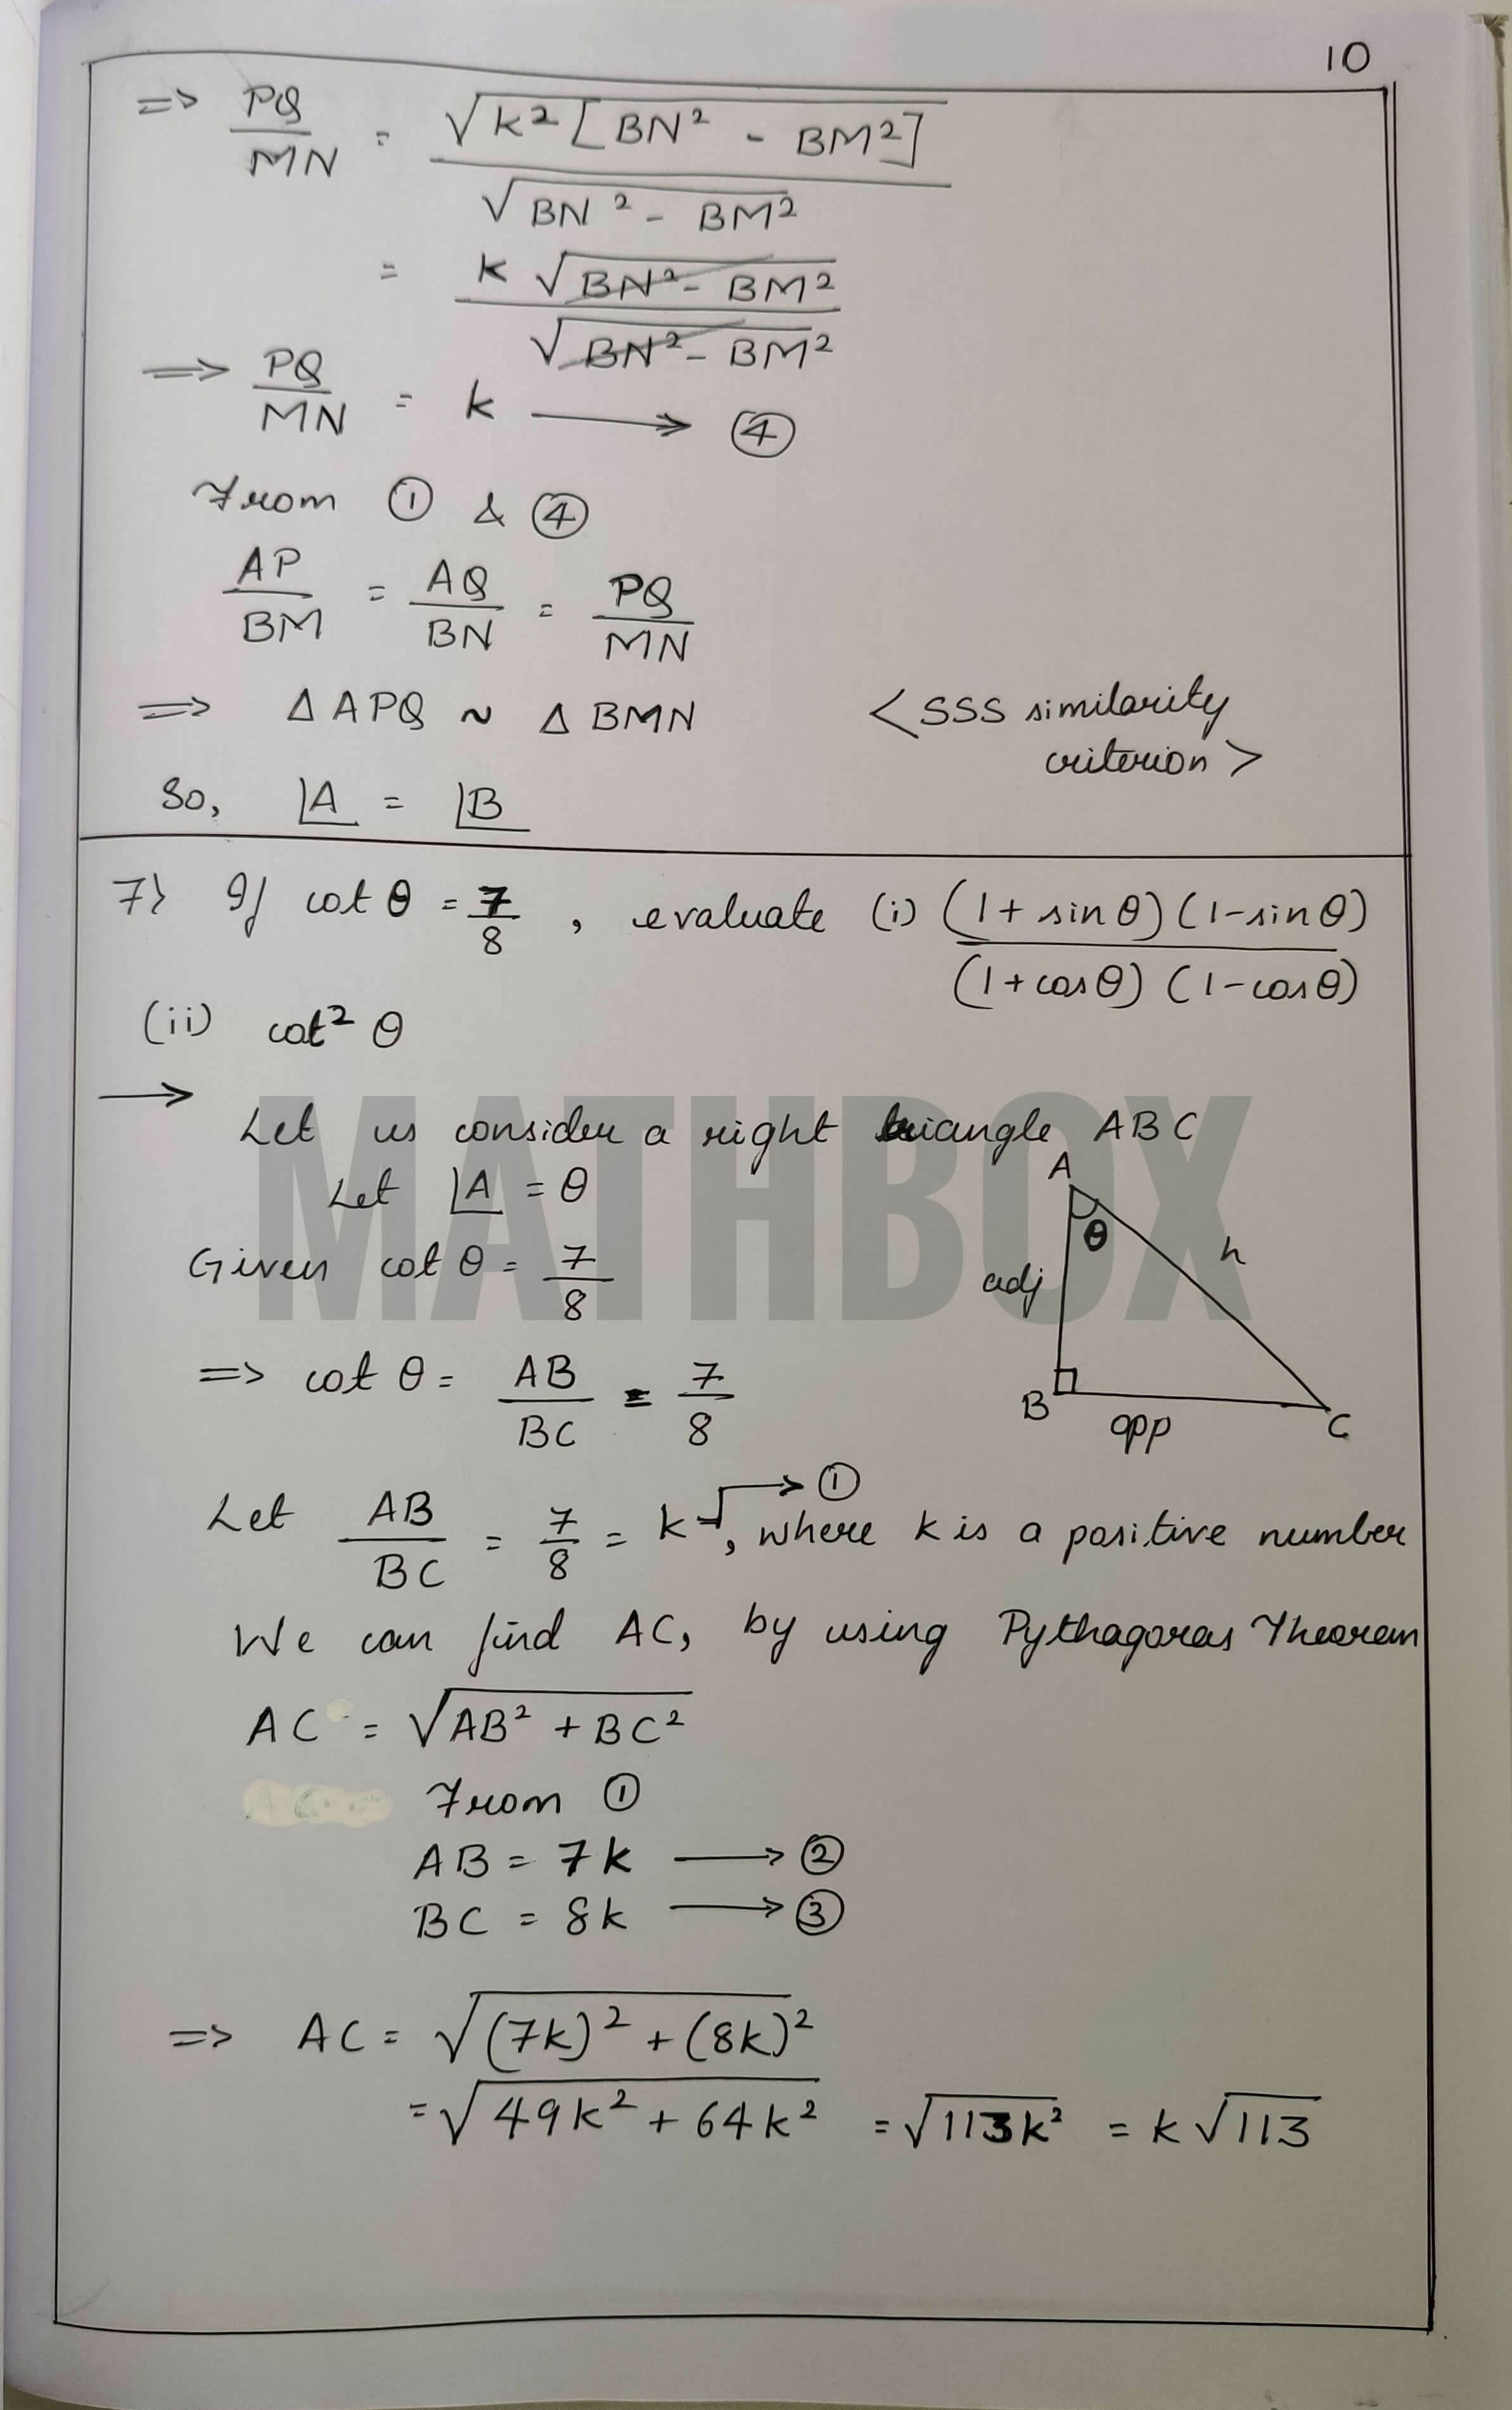 10
=> PQ/MN = √K²[BN² - BM²] / √BN² - BM²
= K √BN² - BM² / √BN² - BM²
=> PQ/MN = k ⟶ ④
From ① & ④
AP/BM = AQ/BN = PQ/MN
=> Δ APQ ~ Δ BMN <SSS similarity
criterion>
So, ∠A = ∠B
7) If cot θ = 7/8, evaluate (i) (1 + sin θ)(1 - sin θ) / (1 + cos θ)(1 - cos θ)
(ii) cot² θ
⟶
Let us consider a right triangle ABC
Let ∠A = θ
Given cot θ = 7/8
=> cot θ = AB/BC = 7/8
A
θ
h
adj
B
opp
C
Let AB/BC = 7/8 = k ⟶ ①, where k is a positive number
We can find AC, by using Pythagoras Theorem
AC = √AB² + BC²
From ①
AB = 7k ⟶ ②
BC = 8k ⟶ ③
=> AC = √(7k)² + (8k)²
= √49k² + 64k² = √113k² = k√113
MATHBOX